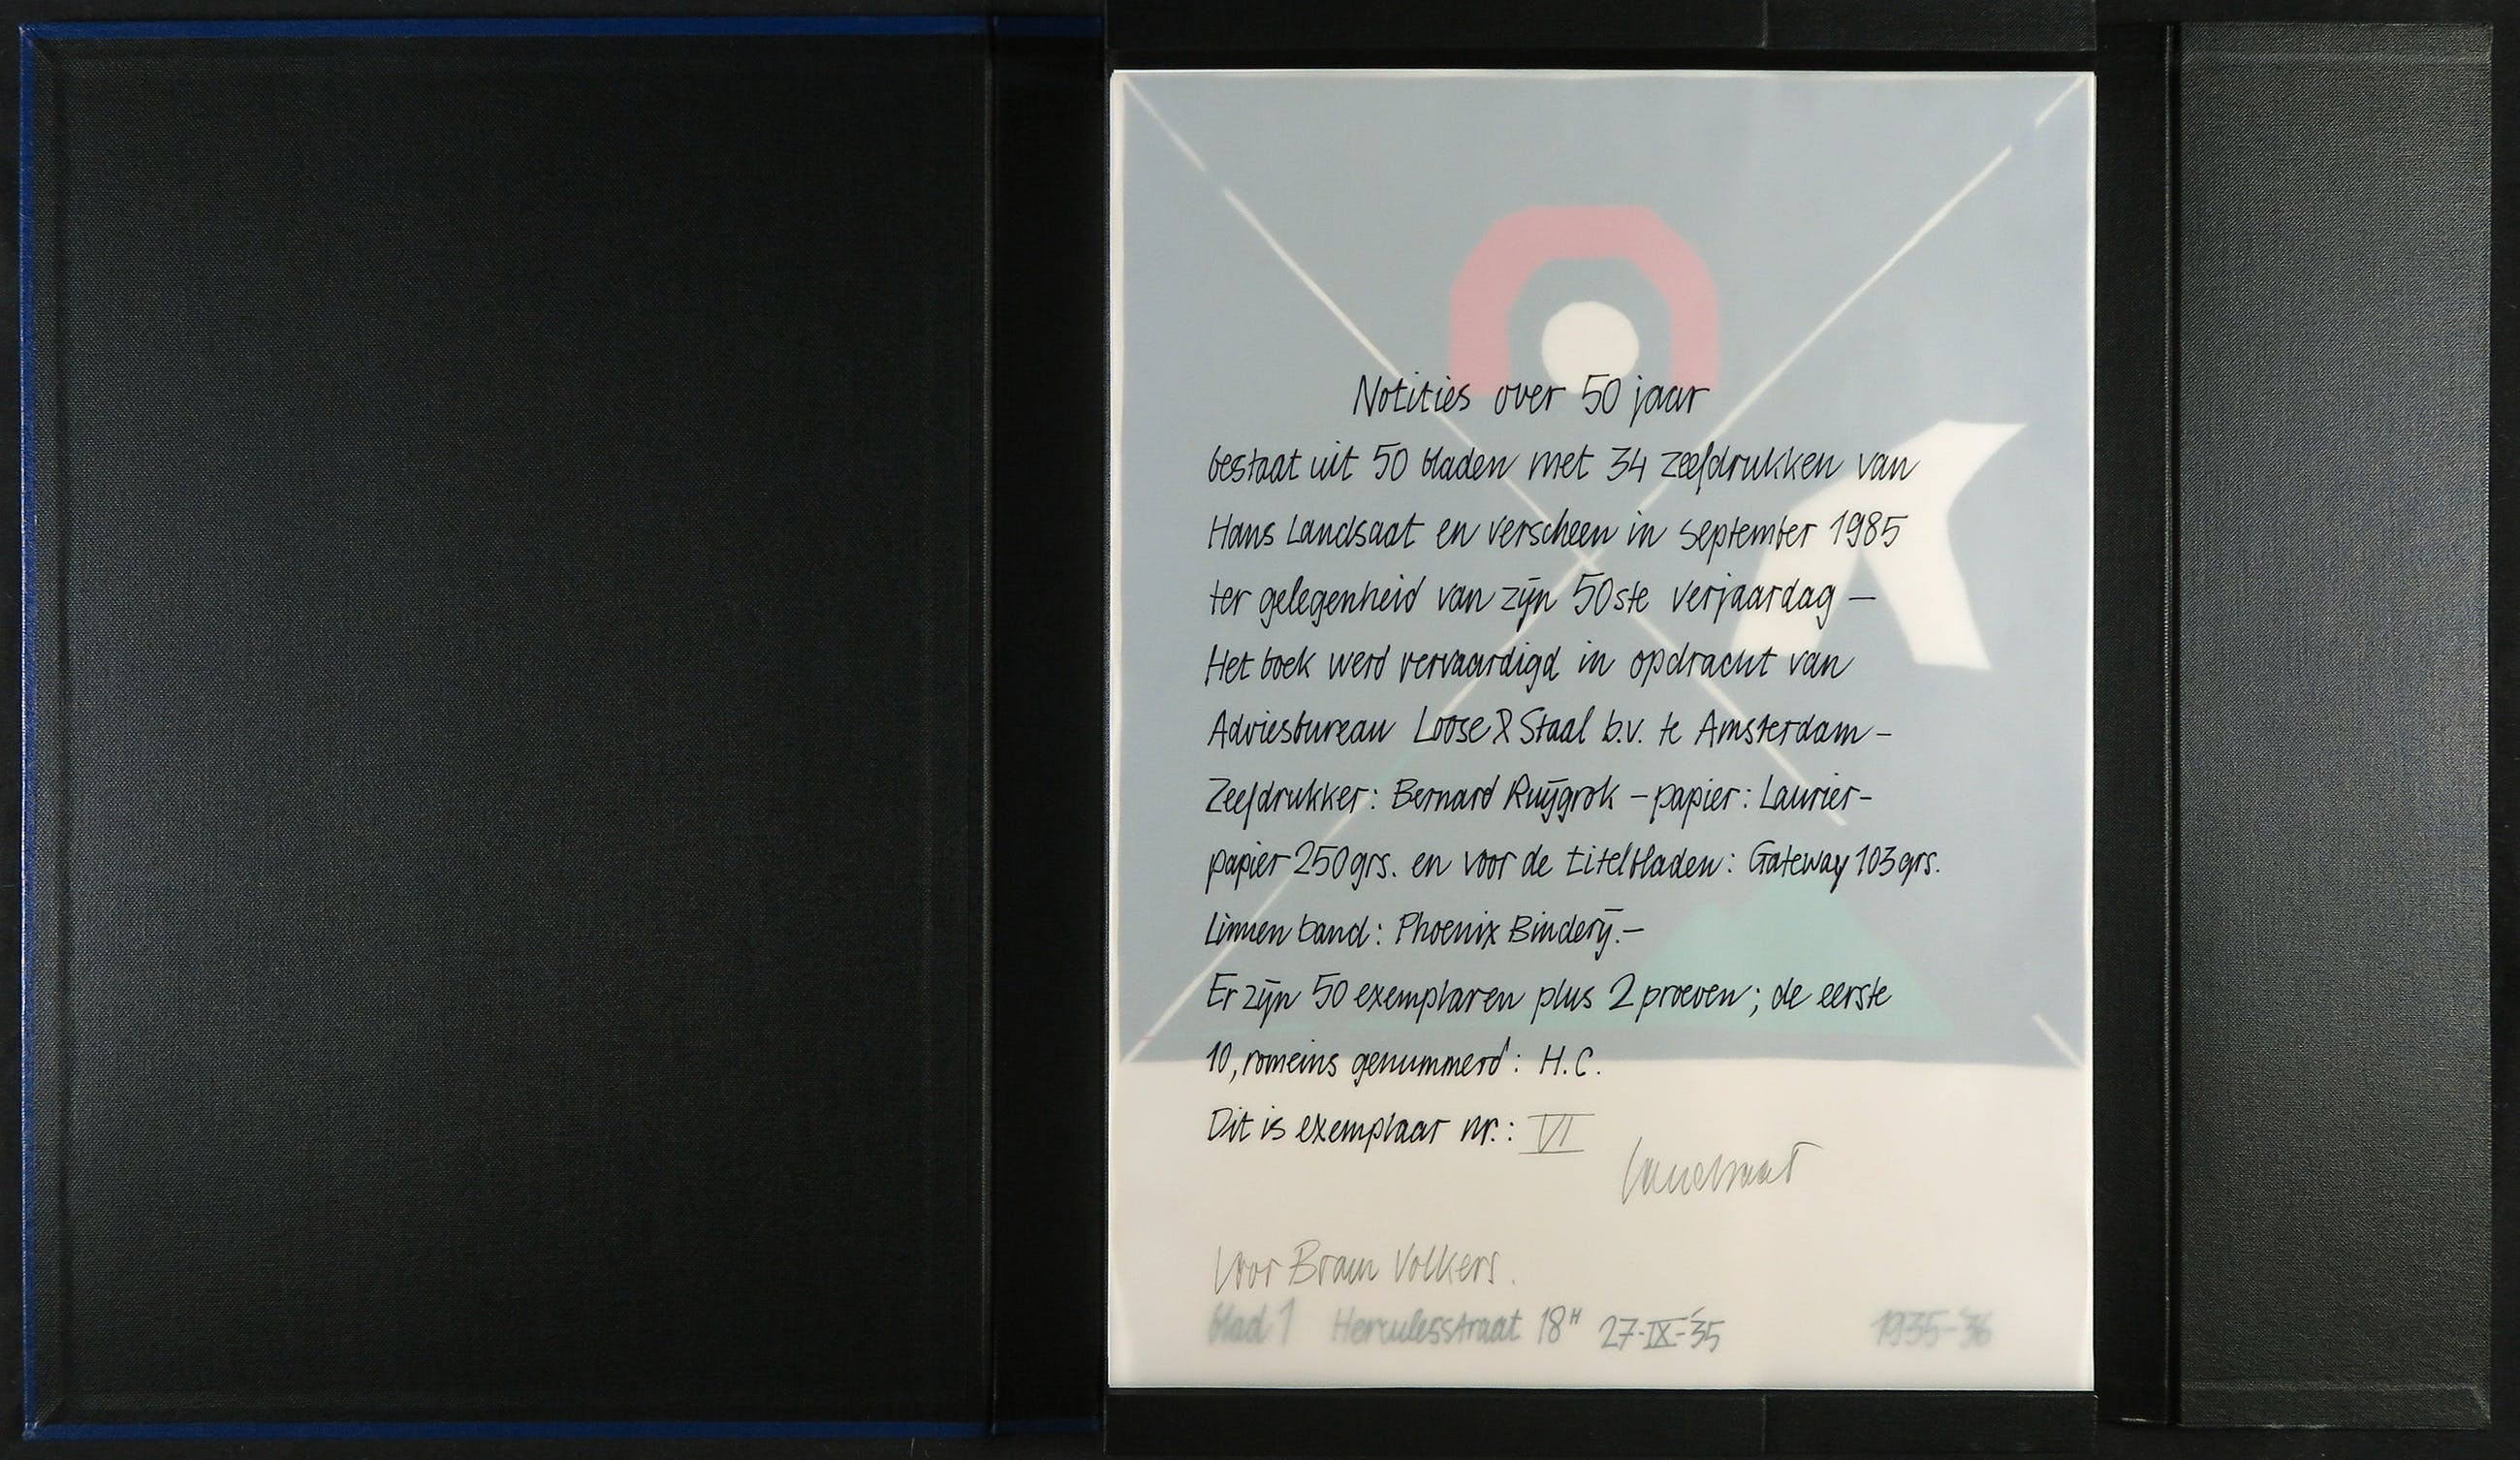 Notities over 50 jaar
bestaat uit 50 bladen met 34 zeefdrukken van
Hans Landsaat en verscheen in september 1985
ter gelegenheid van zijn 50ste verjaardag —
Het boek werd vervaardigd in opdracht van
Adviesbureau Loose & Staal b.v. te Amsterdam -
Zeefdrukker: Bernard Ruijgrok - papier: Laurier-
papier 250grs. en voor de titelbladen: Gateway 103grs.
Linnen band: Phoenix Bindery.-
Er zijn 50 exemplaren plus 2 proeven; de eerste
10, romeins genummerd: H.C.
Dit is exemplaar nr.: VI
Landsaat
Voor Bram Volkers.
blad 1 Herculesstraat 18H 27-IX-'35 1935-'36